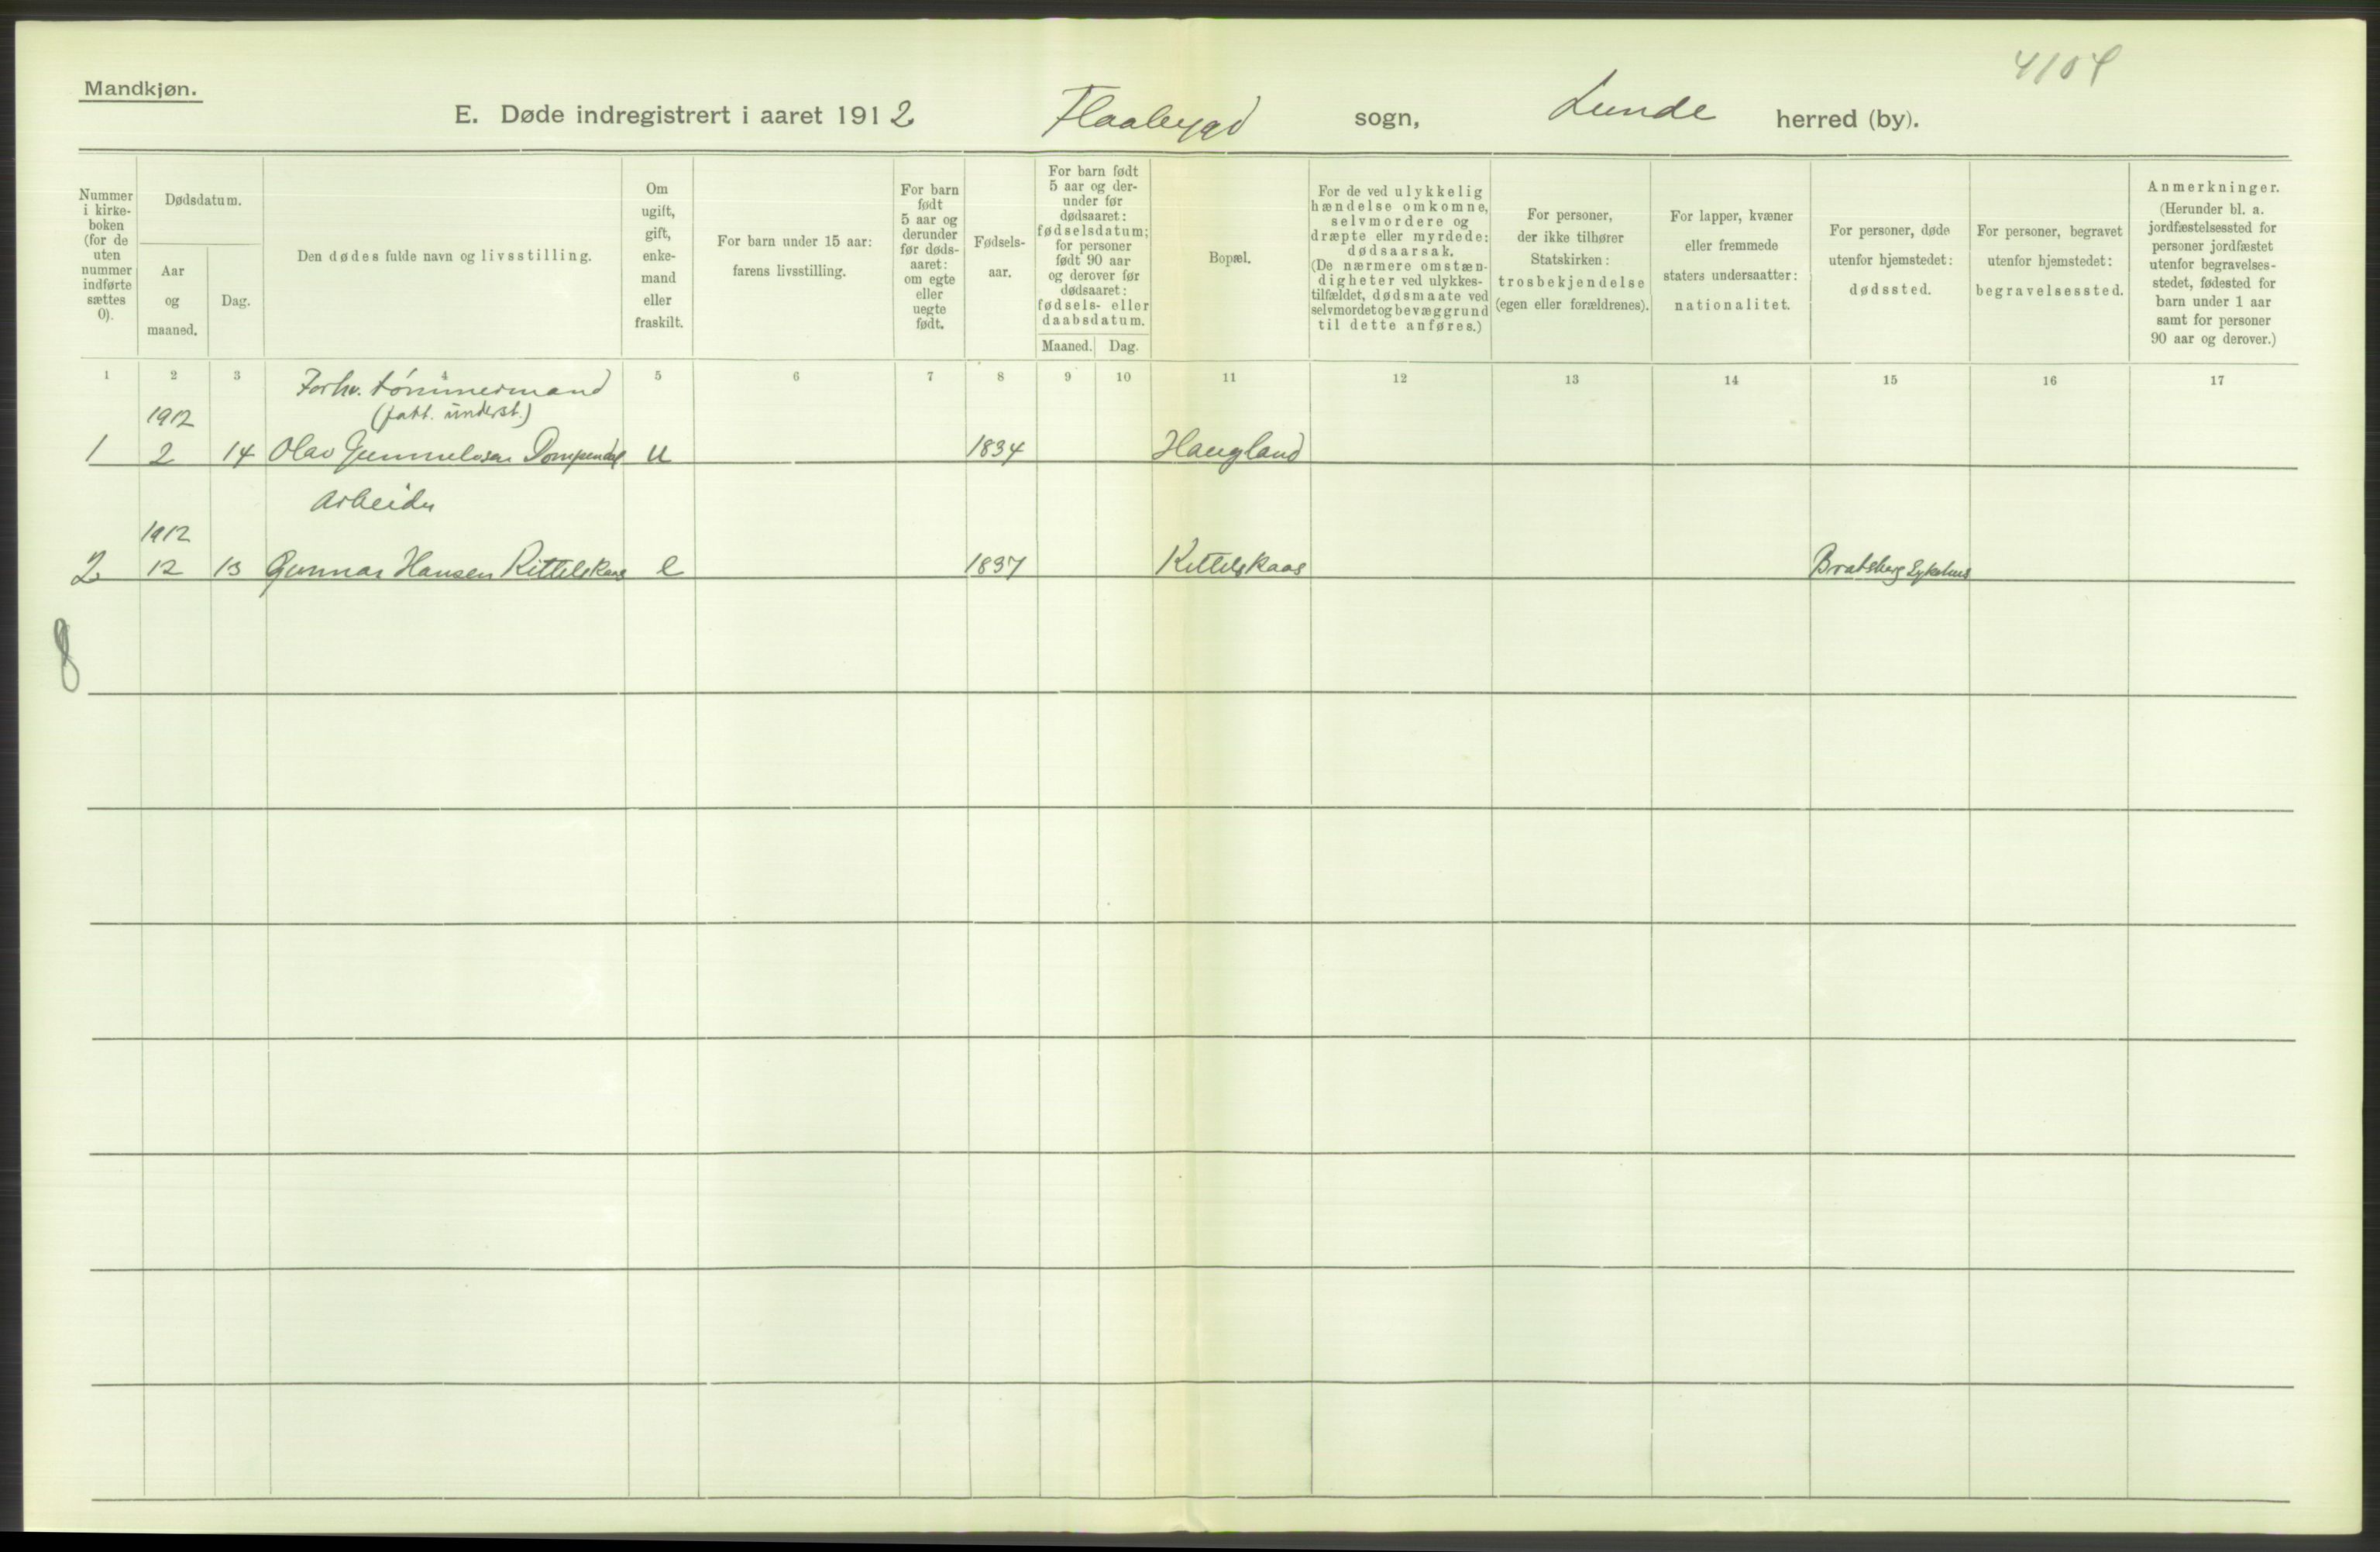 Mandkjøn.
4104
E. Døde indregistrert i aaret 1912 Flaabygd sogn, Lunde herred (by).
Nummer i kirke-boken (for de uten nummer indførte sættes 0).
Dødsdatum.
Aar og maaned.
Dag.
Den dødes fulde navn og livsstilling.
Om ugift, gift, enke-mand eller fraskilt.
For barn under 15 aar: farens livsstilling.
For barn født 5 aar og derunder før døds-aaret: om egte eller uegte født.
Fødsels-aar.
For barn født 5 aar og der-under før dødsaaret: fødselsdatum; for personer født 90 aar og derover før dødsaaret: fødsels- eller daabsdatum.
Maaned. Dag.
Bopæl.
For de ved ulykkelig hændelse omkomne, selvmordere og dræpte eller myrdede: dødsaarsak. (De nærmere omstæn-digheter ved ulykkes-tilfældet, dødsmaate ved selvmordet og bevæggrund til dette anføres.)
For personer, der ikke tilhører Statskirken: trosbekjendelse (egen eller forældrenes).
For lapper, kvæner eller fremmede staters undersaatter: nationalitet.
For personer, døde utenfor hjemstedet: dødssted.
For personer, begravet utenfor hjemstedet: begravelsessted.
Anmerkninger. (Herunder bl. a. jordfæstelsessted for personer jordfæstet utenfor begravelses-stedet, fødested for barn under 1 aar samt for personer 90 aar og derover.)
1 2 3 4 5 6 7 8 9 10 11 12 13 14 15 16 17
Forhv. tømmermand
(fatt. underst.)
1912
1 2 14 Olav Gunnulvsen U 1834 Haugland
Arbeider
1912
2 12 13 Gunnar Hansen Kittelskaas e 1837 Kittelskaas Bratsberg Sykehus
8